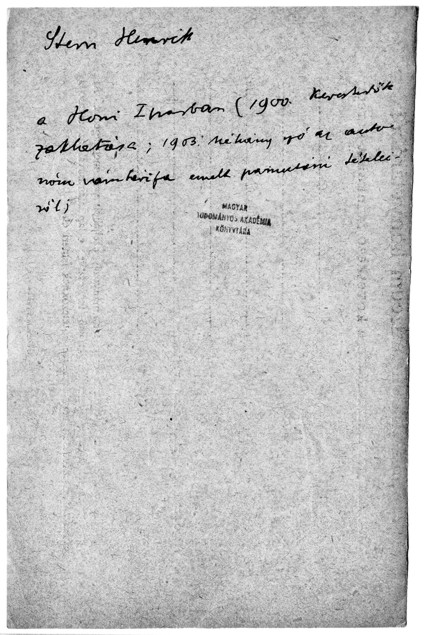 Stern Henrik
a Honi Iparban (1900. Kereskedők
zaklatása; 1903. Néhány szó az auto-
nóm vámtarifa emelt pamutárú tételei-
ről)
MAGYAR
TUDOMÁNYOS AKADÉMIA
KÖNYVTÁRA